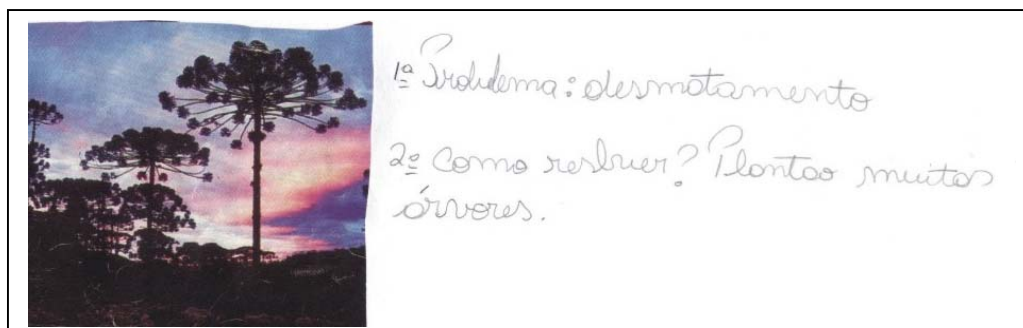 1ª Problema: desmatamento
2º Como resolver? Plantao muitas
árvores.